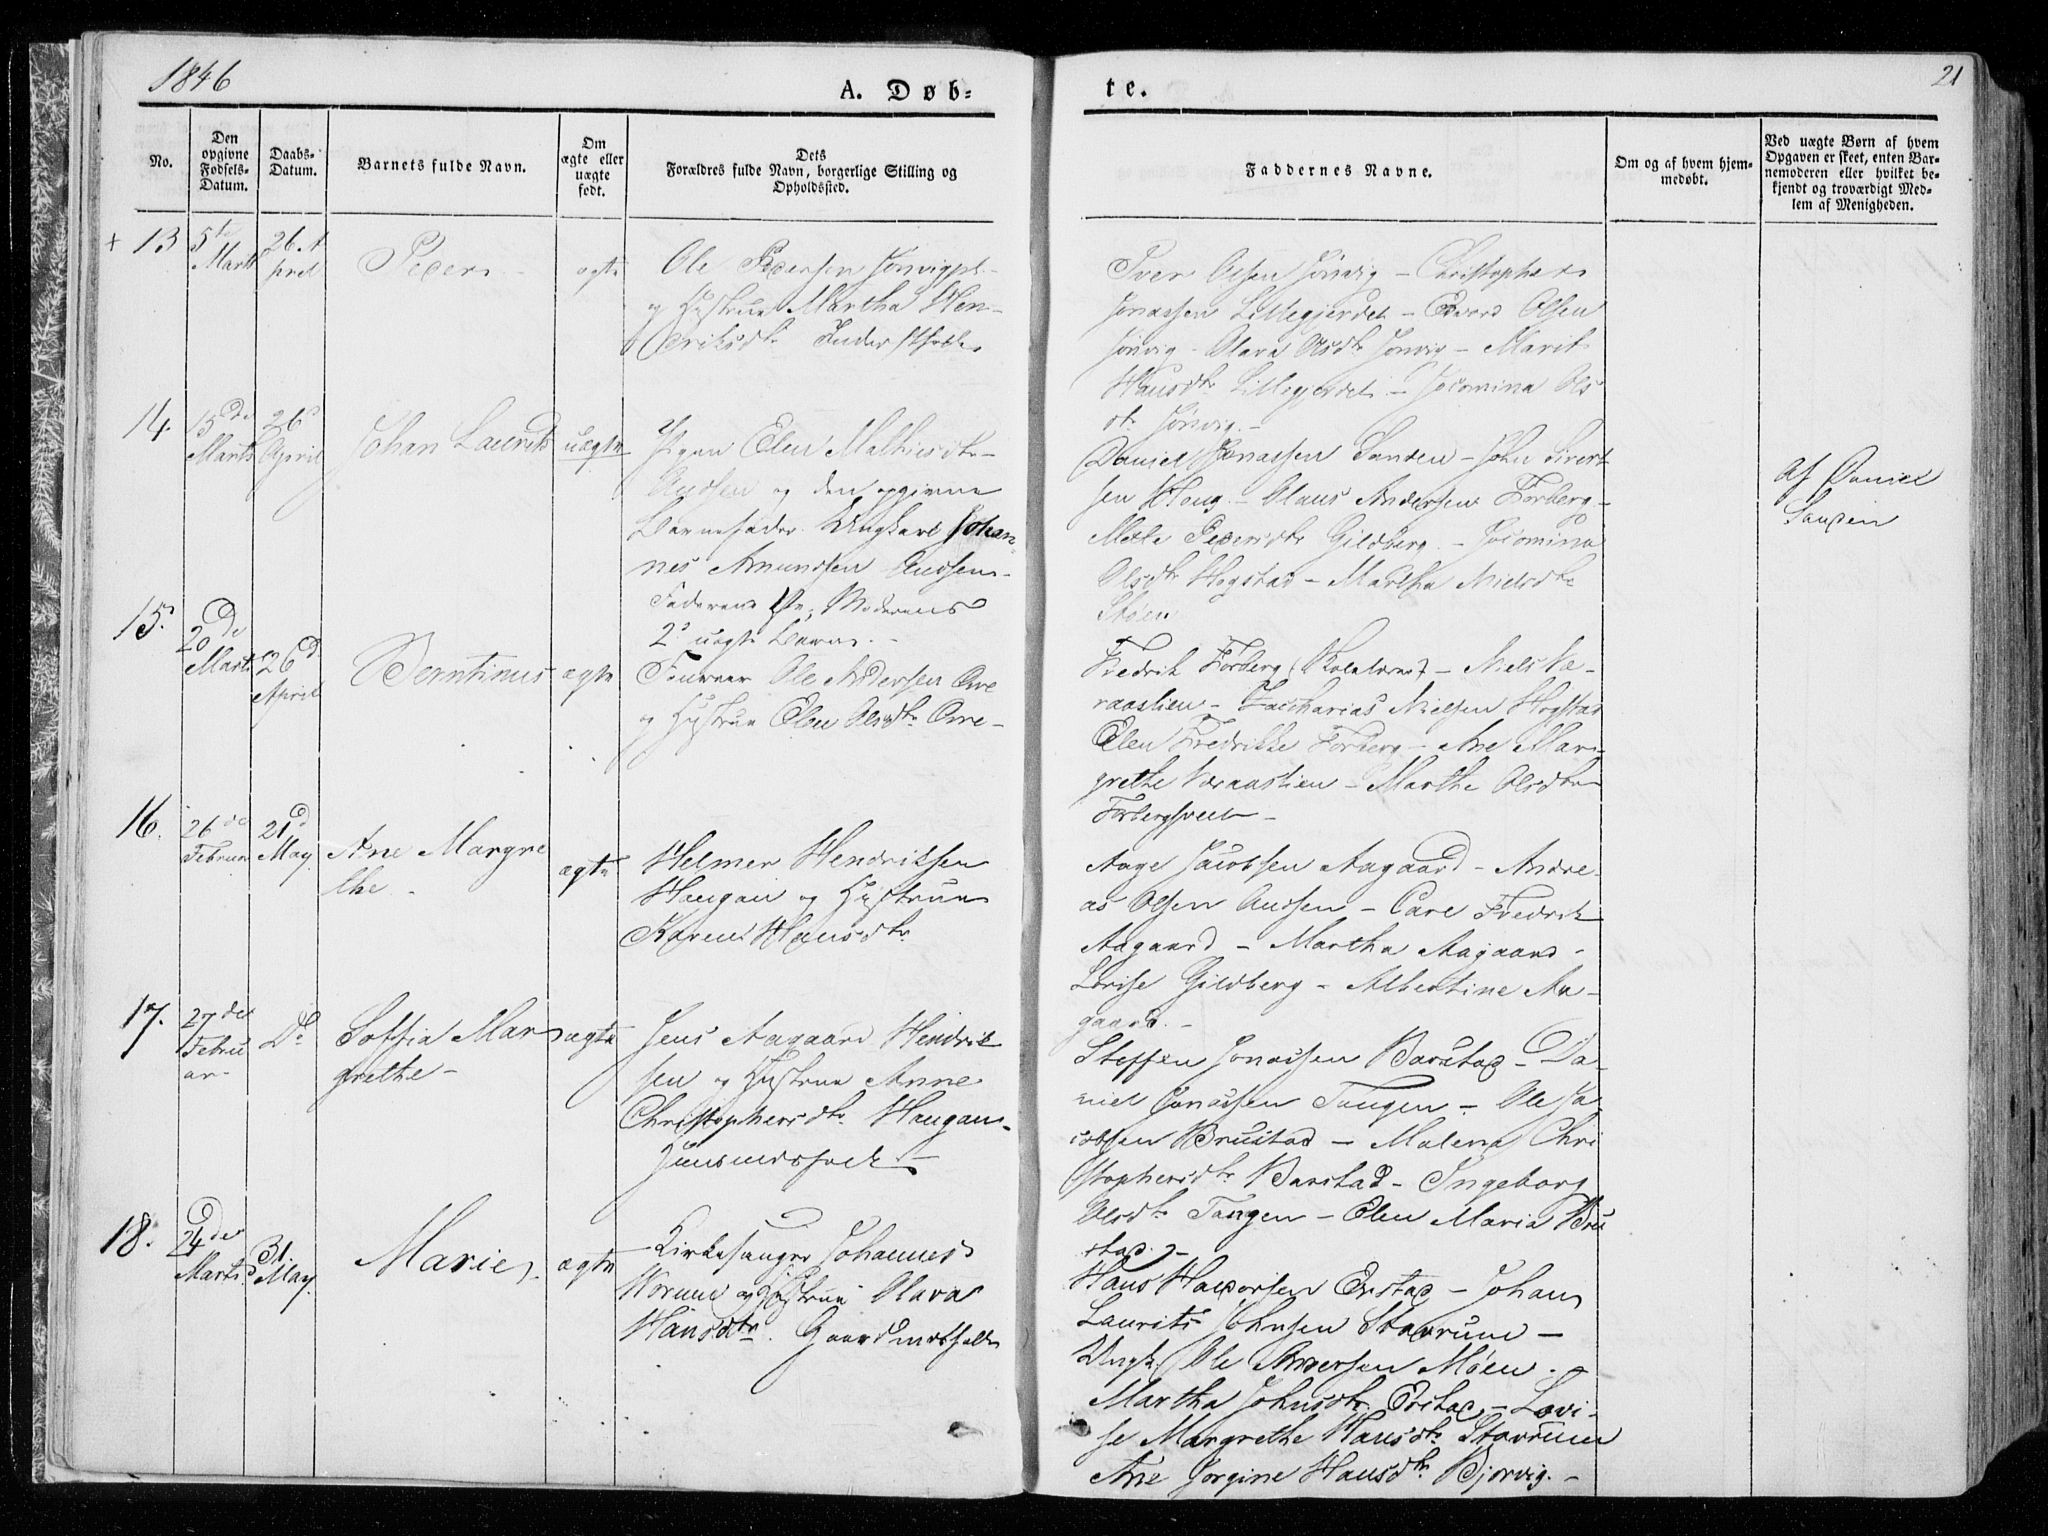 1846
A. Døb-
te.
21
No.
Den
opgivne
Fødsels-
Datum.
Daabs-
Datum.
Barnets fulde Navn.
Om
ægte eller
uægte
født.
Dets
Forældres fulde Navn, borgerlige Stilling og
Opholdssted.
Faddernes Navne.
Om og af hvem hjem-
medøbt.
Ved uægte Børn af hvem
Opgaven er skeet, enten Bar-
nemoderen eller hvilket be-
kjendt og troværdigt Med-
lem af Menigheden.
+ 13
5te
Marts
26. A
pril
Peder
ægte
Ole Pedersen Jørvigpl.
og Hustrue Martha Hen-
riksdtr
Iver Olsen Jørvig - Christopher
Jonassen Lillegjerdet - Edvard Olsen
Jørvig - Olava Olsdtr Jørvig - Marit
Hansdtr Lillegjerdet - Jocomina Ols
dtr Jørvig -
14.
15de
Marts
26d
April
Johan Laurits
uægte
Pigen Elen Mathiesdtr
Audsen og den opgivne
Barnefader Ungkarl Johan-
nes Amundsen Audsen
Faderens 1ste, Moderens
2d uægte Barn -
Daniel Jonassen Sanden - John Sivert
sen Haug - Olaus Andersen Forberg -
Mette Pedersdtr Gildberg - Jocomina
Olsdtr Hogstad - Martha Nielsdtr
Støen
af Daniel
Sanden
15.
20de
Marts
26d
April
Berntinus
ægte
Ole Andersen Ove
og Hustrue Elen Olsdtr Ove -
Fredrik Forberg - Niels Væ-
raaslien - Zacharias Nielsen Hogstad
Elen Fredrikke Forberg - Ane Mar-
grethe Væraaslien - Marthe Olsdtr
16.
26de
Februar
21d
May
Ane Margre
the -
ægte
Helmer Hendriksen
Haugan og Hustrue
Karen Hansdtr
Aage Jacobsen Aagaard - Andre-
as Olsen Audsen - Carl Fredrik
Aagaard - Martha Aagaard -
Lovise Gildberg - Albertine Aa-
gaard. -
17.
27de
Febru
ar
Do
Soffia Mar
grethe -
ægte
Jens Aagaard Hendrik
sen og Hustrue Anne
Christophersdtr Haugan -
Huusmandsfolk -
Steffen Jonassen Barstad - Da-
niel Jonassen Tangen - Ole Ja-
cobsen Brustad - Malena Chri
stophersdtr Barstad - Ingeborg
Olsdtr Tangen - Elen Maria Bru
stad. -
18.
24de
Marts
31.
May
Marie
ægte
Kirkesanger Johannes
Worum og Hustrue Olava
Hansdtr. Gaardmandsfolk
Hans Haldorsen Erstad - Johan
Laurits Johnsen Stavrum -
Ungk. Ole Andersen Moen -
Martha Johnsdtr Erstad - Lovi-
se Margrethe Hansdtr Stavrum
Ane Jorgine Hansdtr Bjørvig. -